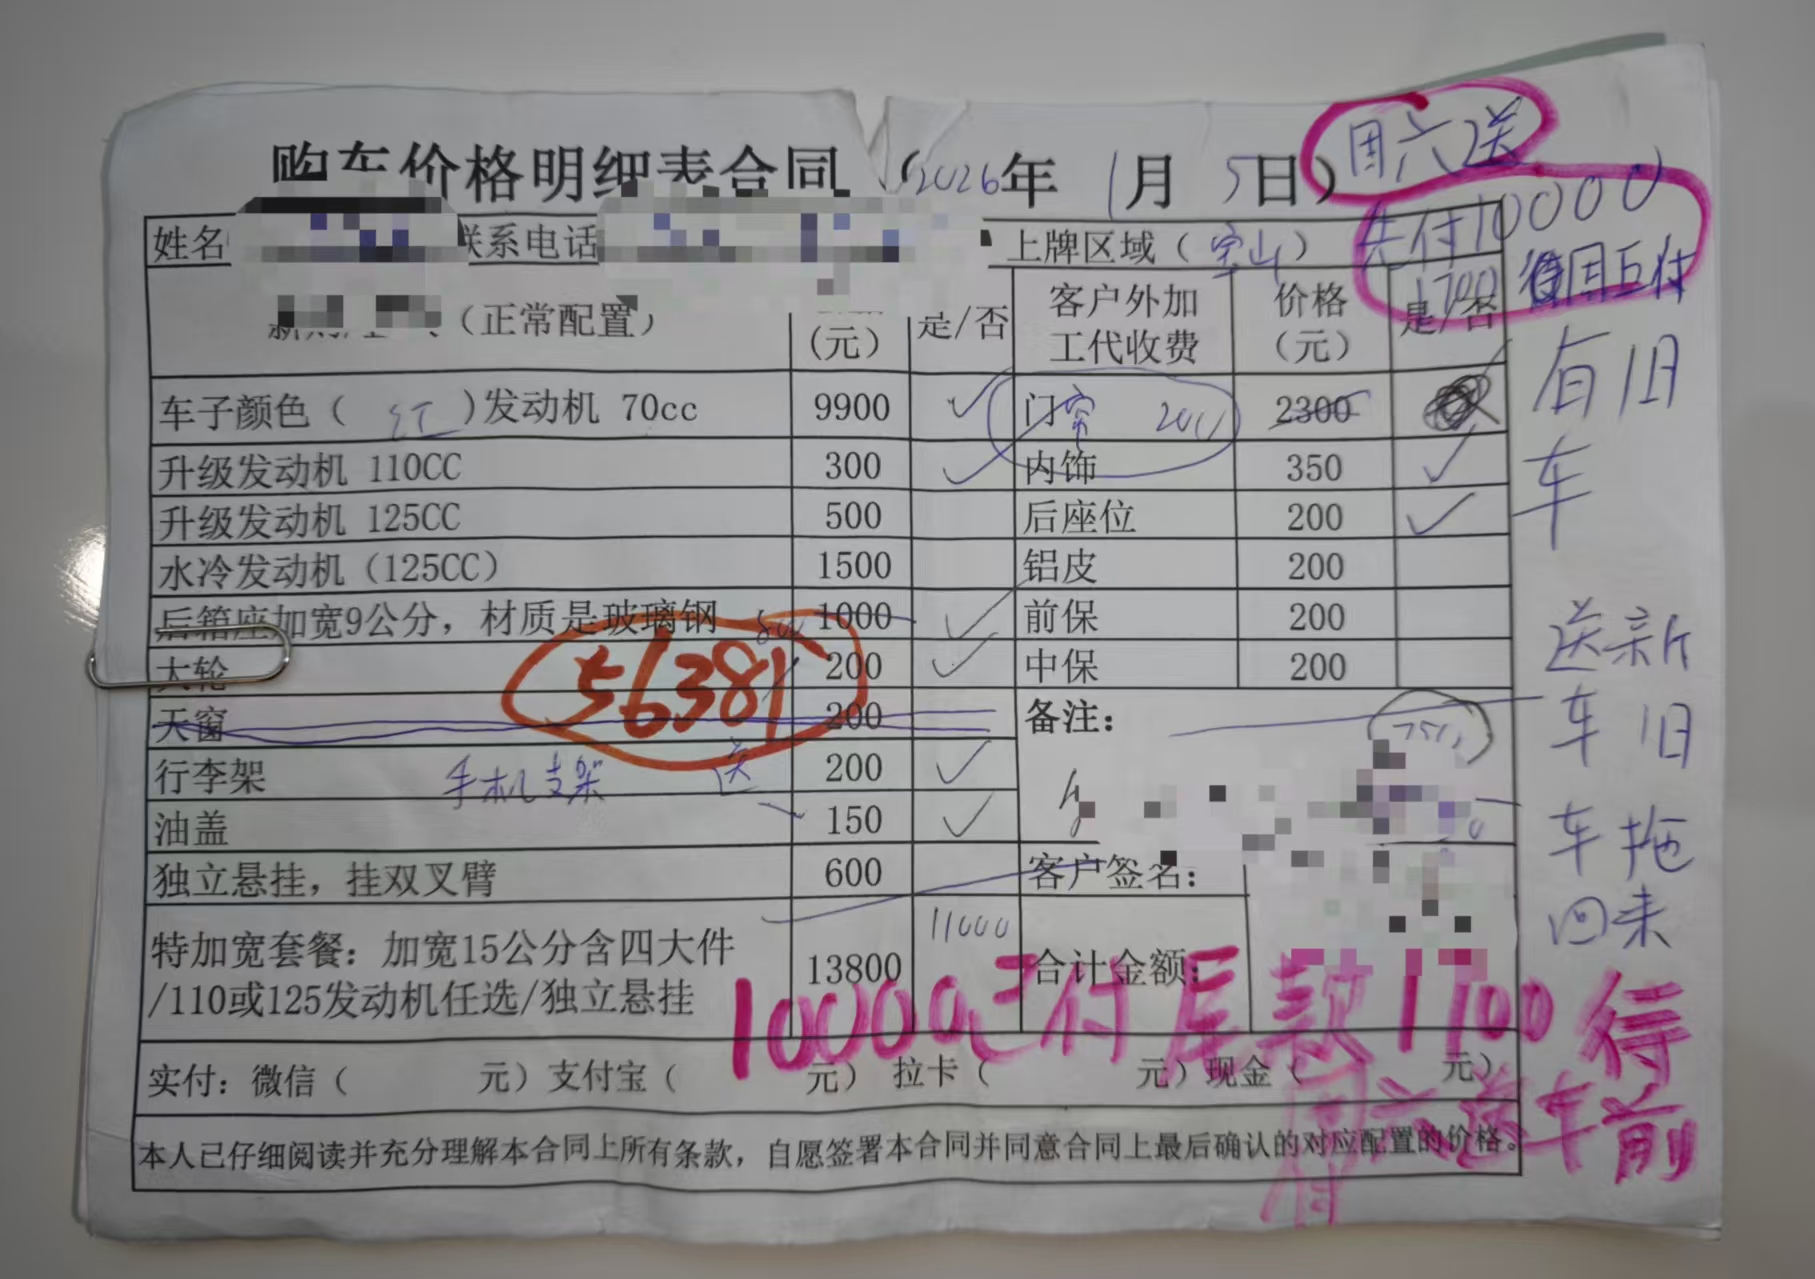 购车价格明细表合同（2026年1月5日）
周六送
先付10000
姓名 联系电话 上牌区域（宝山）
1700 待周五付
（正常配置） （元） 是/否 客户外加工代收费 价格（元） 是/否
有旧车
车子颜色（红）发动机 70cc 9900 ✓ 门帘 200 2300
升级发动机 110CC 300 ✓ 内饰 350 ✓
升级发动机 125CC 500 后座位 200 ✓
水冷发动机（125CC） 1500 铝皮 200
后箱座加宽9公分，材质是玻璃钢 800 1000 ✓ 前保 200
大轮 200 ✓ 中保 200
56381
送新车旧车拖回来
天窗 200 备注：
行李架 手机支架 送 200 ✓
油盖 150 ✓
独立悬挂，挂双叉臂 600 客户签名：
特加宽套餐：加宽15公分含四大件/110或125发动机任选/独立悬挂 13800 11000 合计金额：
10000已付尾款1700待
周六送车前付
实付：微信（ 元）支付宝（ 元）拉卡（ 元）现金（ 元）
本人已仔细阅读并充分理解本合同上所有条款，自愿签署本合同并同意合同上最后确认的对应配置的价格。